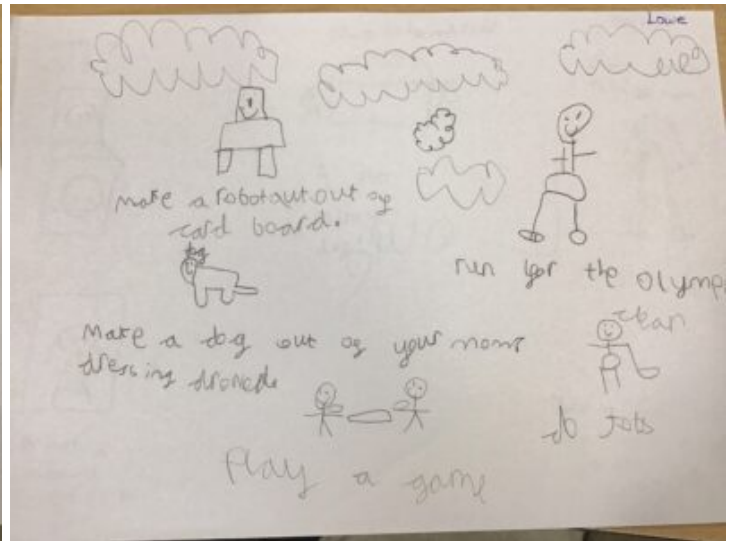 Lowe
make a robot out out of
card board.
run for the Olymp
tean
Make a dog out of your moms
dressing
do Jobs
Play a game